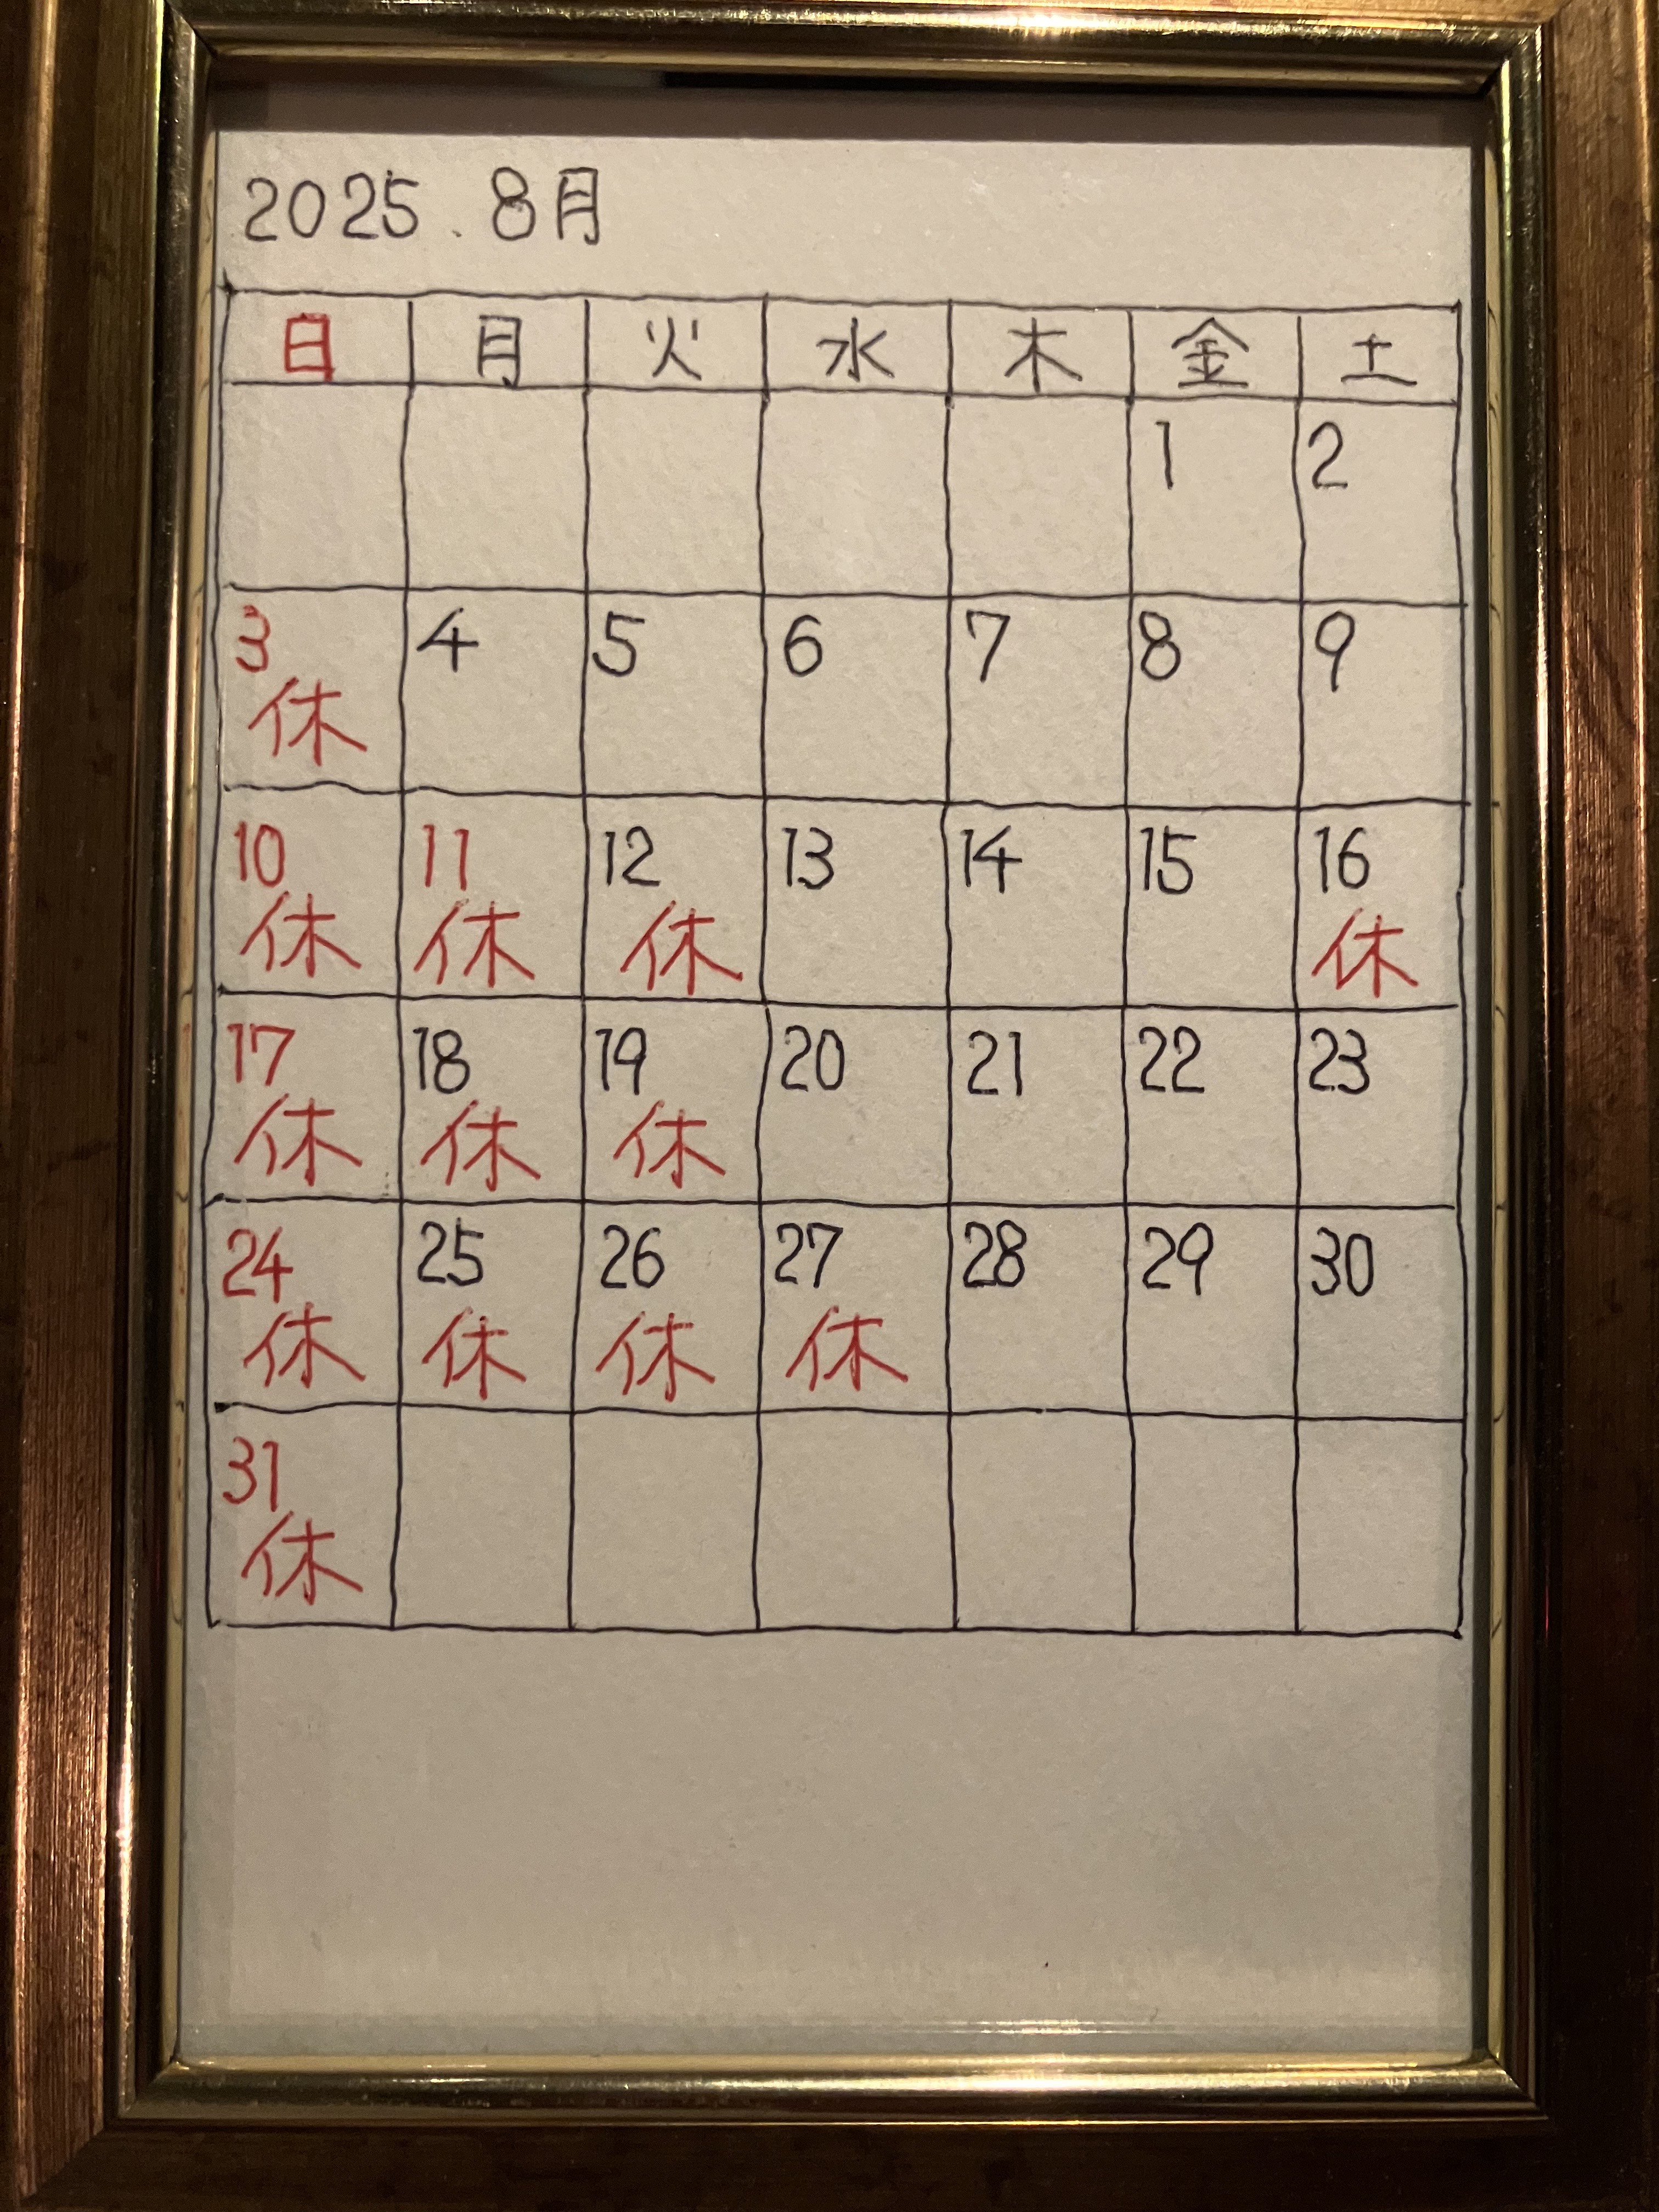 2025.8月
日 月 火 水 木 金 土
1 2
3 4 5 6 7 8 9
休
10 11 12 13 14 15 16
休 休 休 休
17 18 19 20 21 22 23
休 休 休
24 25 26 27 28 29 30
休 休 休 休
31
休